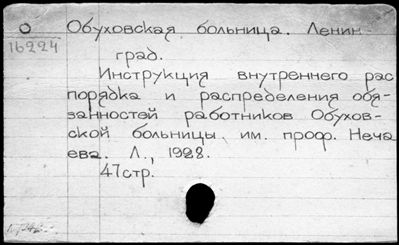 О Обуховская больница. Ленин
16224
град.
Инструкция внутреннего рас
порядка и распределения обя-
занностей работников Обухов-
ской больницы им. проф. Неча
ева. Л., 1928.
47стр.